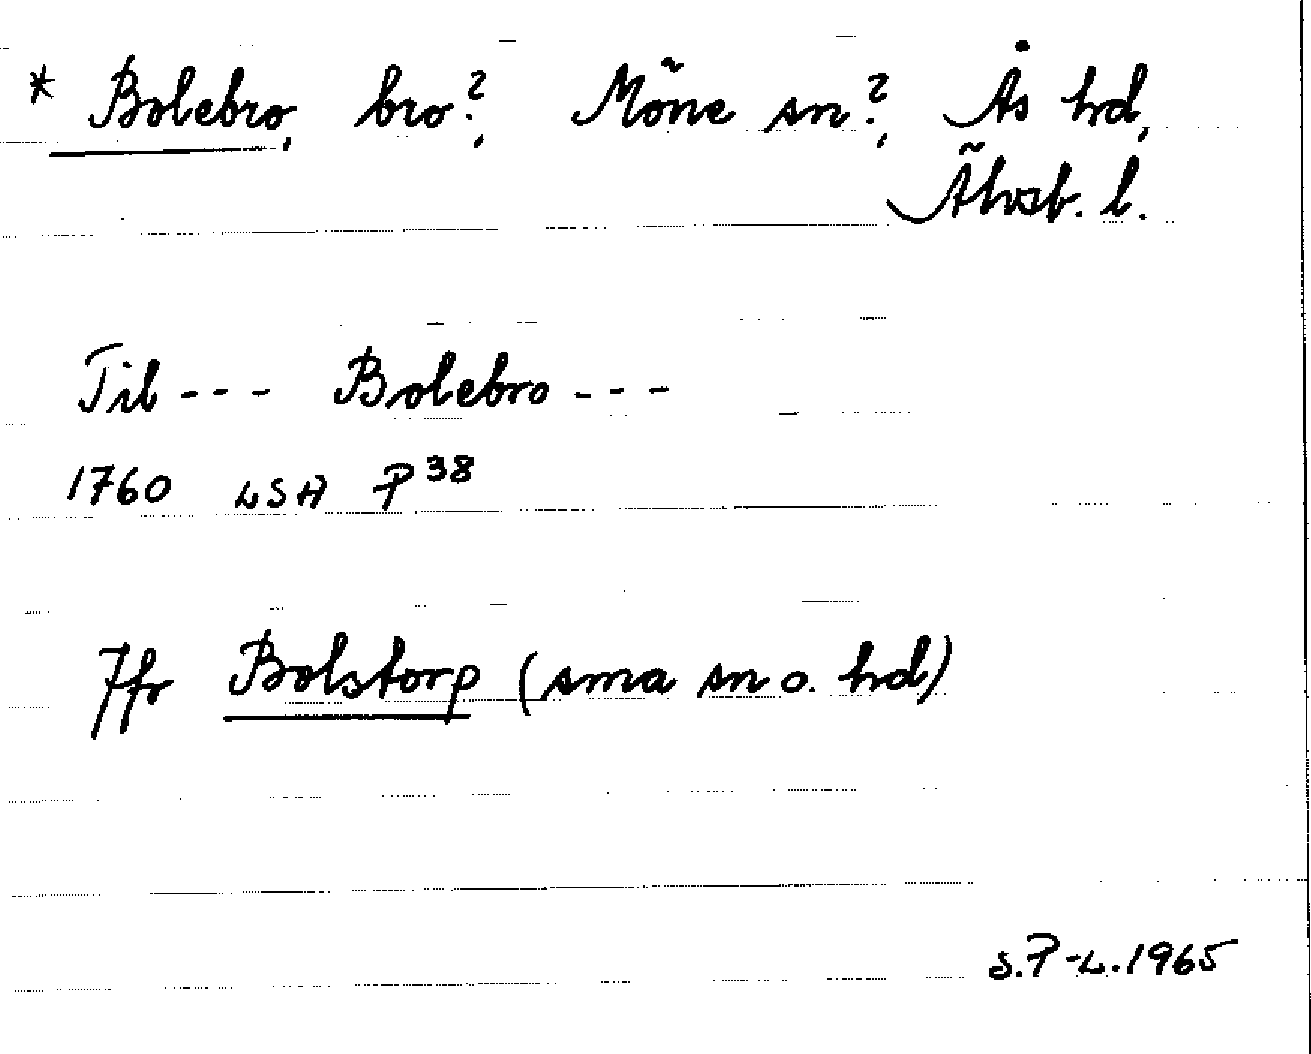 * Bolebro, bro?, Möne sn?, Ås hd,
Älvsb. l.
Til --- Bolebro ---
1760 LSA P 38
Jfr Bolstorp (sma sn o. hd)
S.P-L.1965